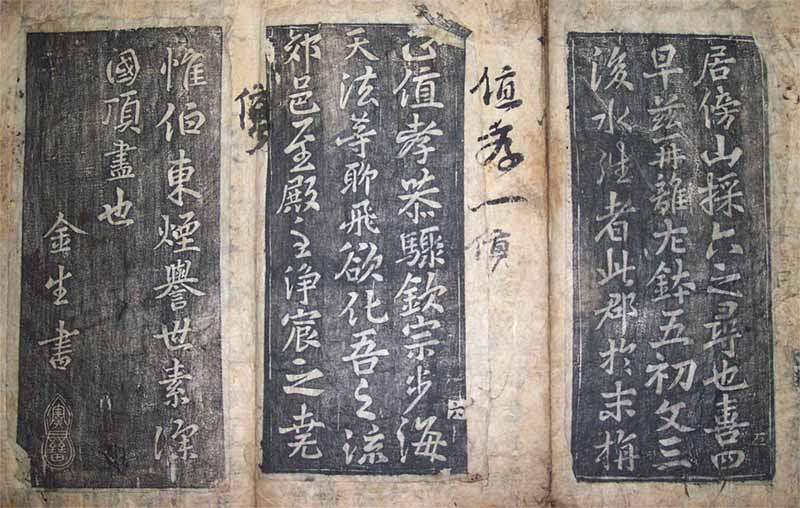 居傍山採六之尋也喜四
早茲冊離九鉢五初文三
後水者此郡於末梅
值孝一
值孝恭驟欽宗步海
天法等聊飛欲化吾之流
郊邑至殿主淨宸之
惟伯東煙譽世素深
國頂盡也
金生書